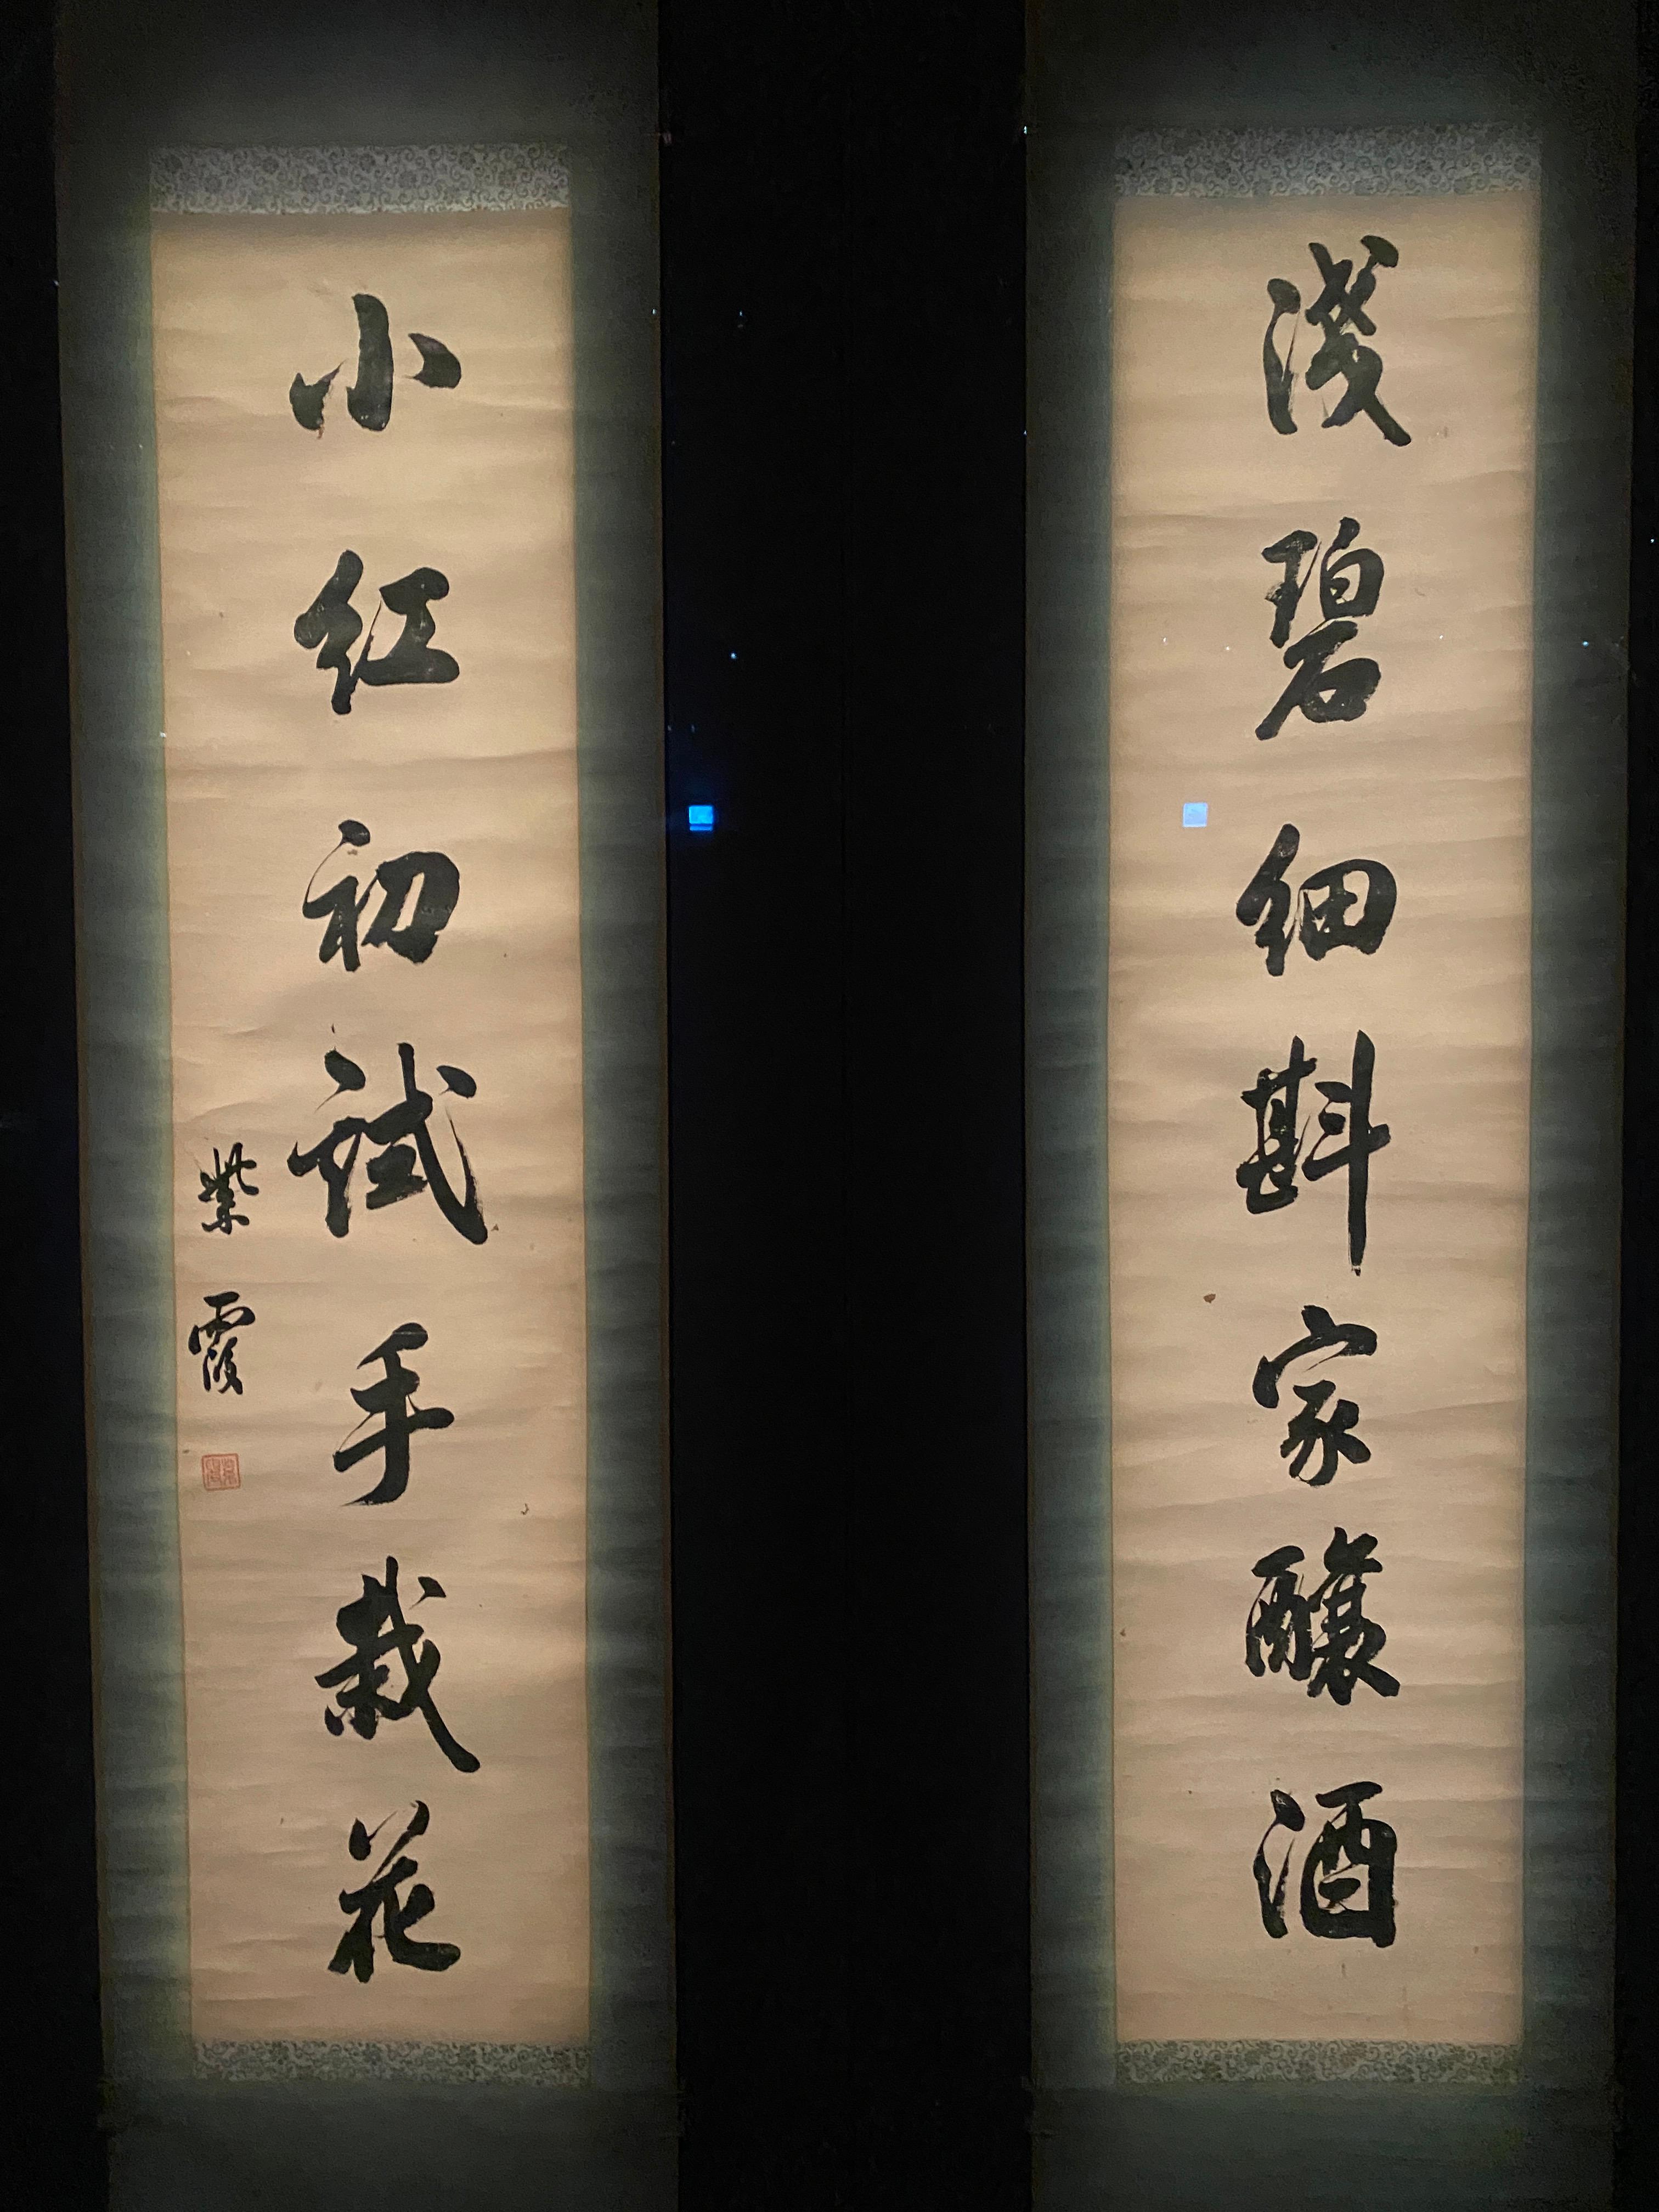 淺碧細斟家釀酒
小紅初試手栽花
紫霞